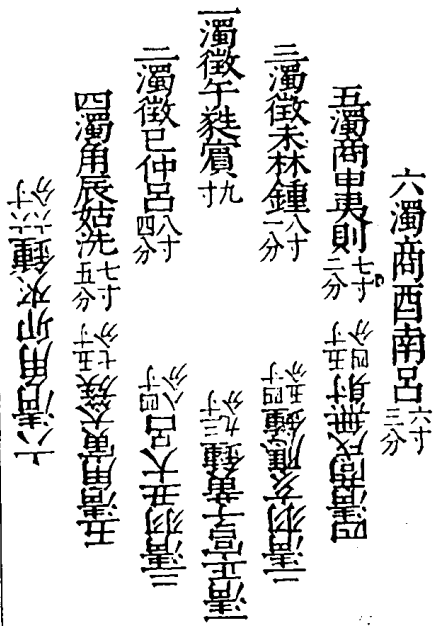 六濁商酉南呂六寸三分
五濁商申夷則七寸二分
三濁徵未林鍾八寸一分
一濁徵午蕤賓九寸
二濁徵巳仲呂八寸四分
四濁角辰姑洗七寸五分
六清角卯夾鍾六寸六分
五清角寅太簇五寸七分
三清羽丑大呂四寸八分
一清正宮子黃鍾三寸九分
二清羽亥應鍾四寸五分
四清商戌無射五寸四分